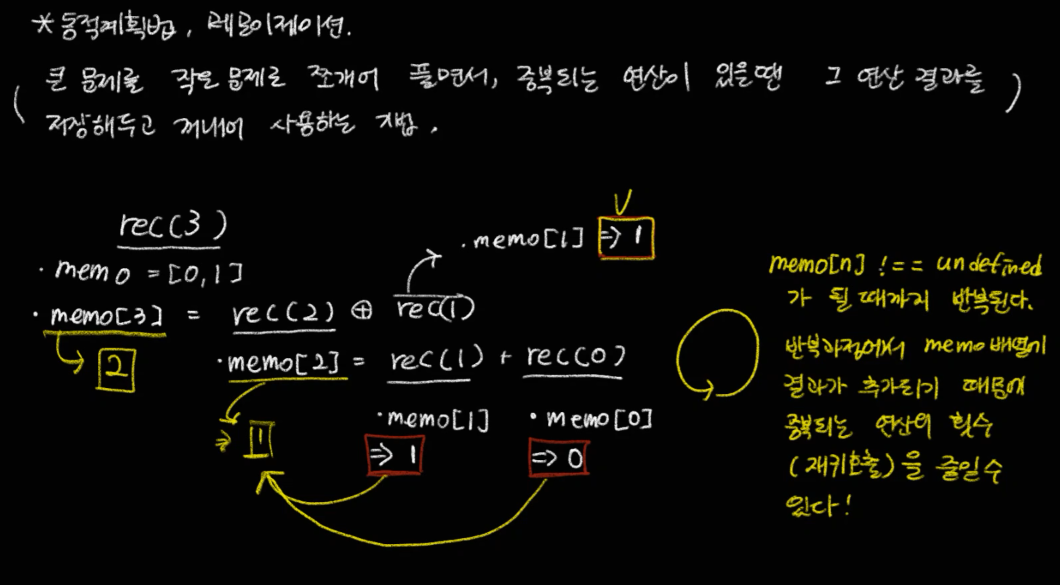 * 동적계획법, 메모이제이션.
( 큰 문제를 작은 문제로 쪼개어 풀면서, 중복되는 연산이 있을땐 그 연산 결과를
저장해두고 꺼내어 사용하는 기법. )
rec(3)
· memo = [0,1]
· memo[3] = rec(2) ⊕ rec(1)
· memo[1] => 1
2
· memo[2] = rec(1) + rec(0)
=> 1
· memo[1] · memo[0]
=> 1 => 0
memo[n] !== undefined
가 될 때까지 반복된다.
반복과정에서 memo배열에
결과가 추가되기 때문에
중복되는 연산의 횟수
(재귀호출)을 줄일 수
있다!